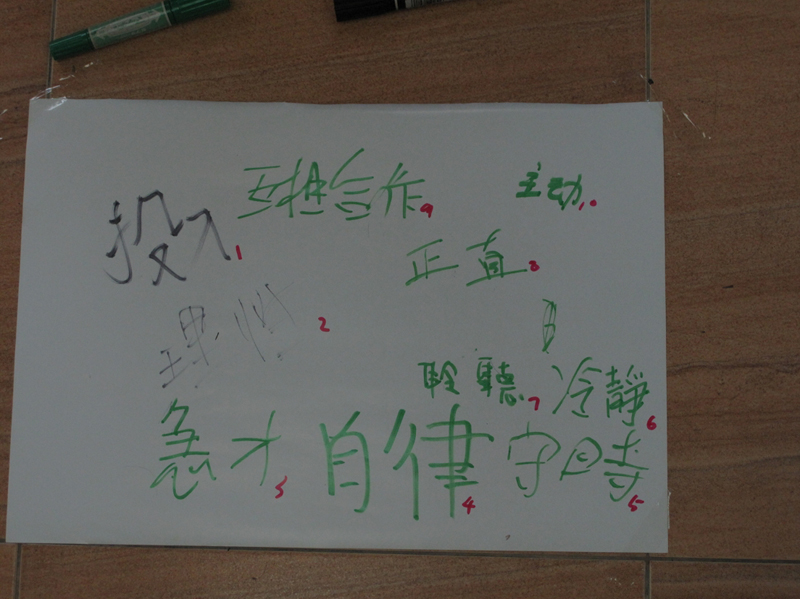 互相合作 9
主动 10
投入 1
正直 8
理性 2
聆聽 7
冷靜 6
急才 3
自律 4
守时 5